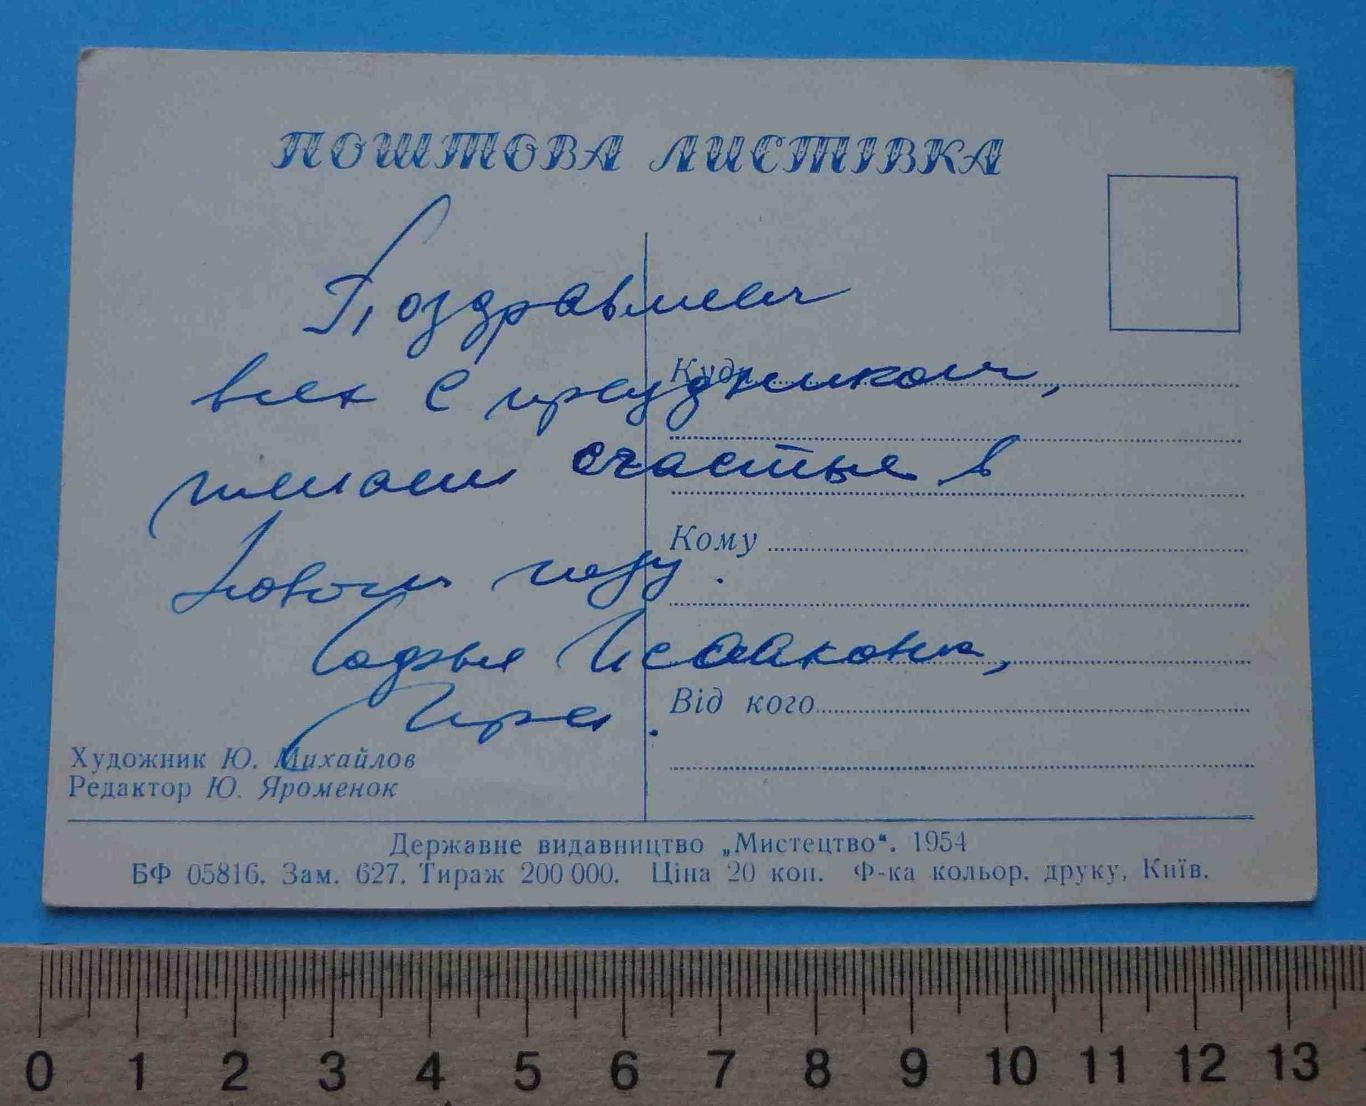 ПОШТОВА ЛИСТІВКА
Поздравляем
всех с праздником,
желаем счастья в
Новом году.
Софья Исааковна,
Ира.
Куди
Кому
Від кого
Художник Ю. Михайлов
Редактор Ю. Яроменок
Державне видавництво „Мистецтво“. 1954
БФ 05816. Зам. 627. Тираж 200 000. Ціна 20 коп. Ф-ка кольор. друку, Київ.
0 1 2 3 4 5 6 7 8 9 10 11 12 13